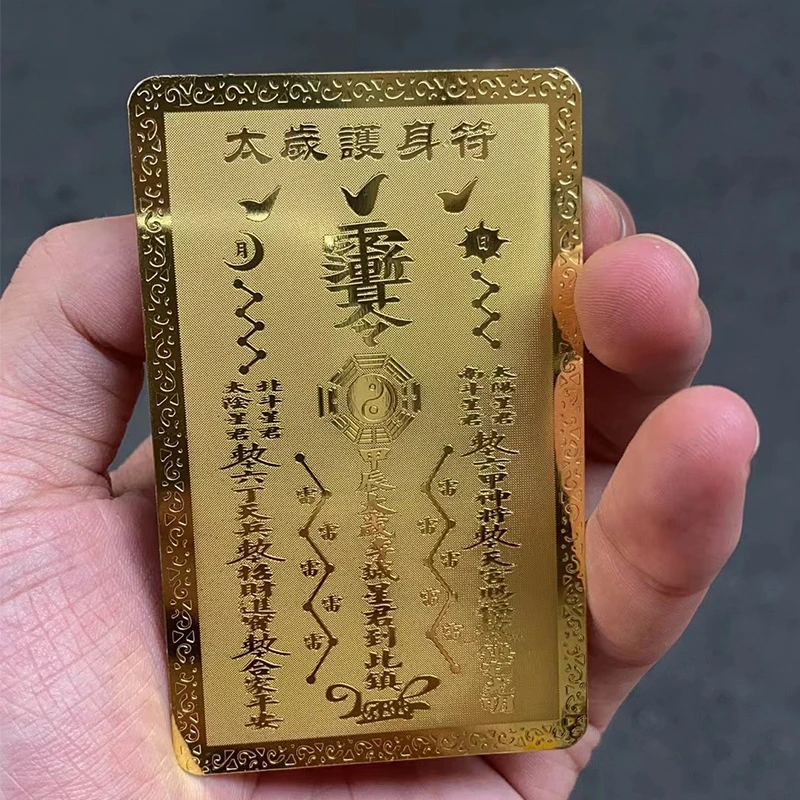 太歲護身符
日
月
太陽星君
南斗星君
敕六甲神將敕天官賜福
雷
雷
雷
雷
甲辰太歲李誠星君到此鎮
雷
雷
雷
雷
北斗星君
太陰星君
敕六丁天兵敕招財進寶敕合家平安